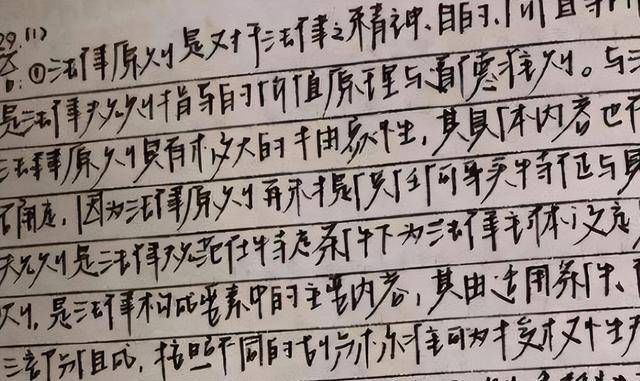 29.(1)
答:①法律原则是对于法律之精神、目的、价值等
是法律规则指导的价值原理与道德准则。与
法律原则具有极大的抽象性,其具体内容也不
确定,因为法律原则再未提供任何事实特征与具
规则是法律规范在特定条件下为法律主体设定
则,是法律构成要素中的主要内容,其由适用条件、
三部分组成,按照不同的划分标准可为授权性